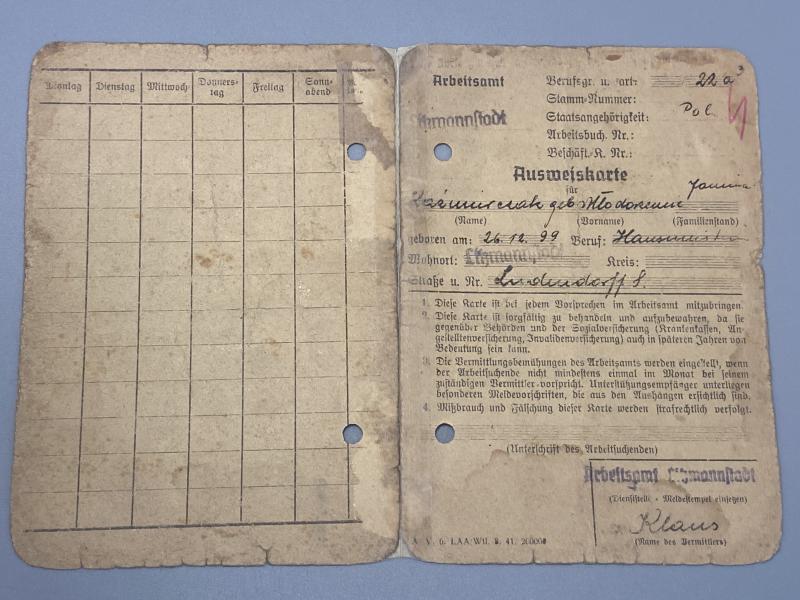 Dienstag Mittwoch Donners-tag Freitag Sonn-abend
Arbeitsamt
Litzmannstadt
Berufsgr. u. -art: 22 a 3
Stamm-Nummer:
Staatsangehörigkeit: Pol.
Arbeitsbuch Nr.:
Beschäft.-K. Nr.:
Ausweiskarte
für
geb. Janina
(Name) (Vorname) (Familienstand)
geboren am: 26.12.99 Beruf:
Wohnort: Litzmannstadt Kreis:
Straße u. Nr. Ludendorff 8.
1. Diese Karte ist bei jedem Vorsprechen im Arbeitsamt mitzubringen.
2. Diese Karte ist sorgfältig zu behandeln und aufzubewahren, da sie
gegenüber Behörden und der Sozialversicherung (Krankenkassen, An-
gestelltenversicherung, Invalidenversicherung) auch in späteren Jahren von
Bedeutung sein kann.
3. Die Vermittlungsbemühungen des Arbeitsamts werden eingestellt, wenn
der Arbeitsuchende nicht mindestens einmal im Monat bei seinem
zuständigen Vermittler vorspricht. Unterstützungsempfänger unterliegen
besonderen Meldevorschriften, die aus den Aushängen ersichtlich sind.
4. Mißbrauch und Fälschung dieser Karte werden strafrechtlich verfolgt.
(Unterschrift des Arbeitsuchenden)
Arbeitsamt Litzmannstadt
(Dienststelle - Meldestempel einsetzen)
Klaus
(Name des Vermittlers)
A. V. 6. LAA/Wll. 41. 20000